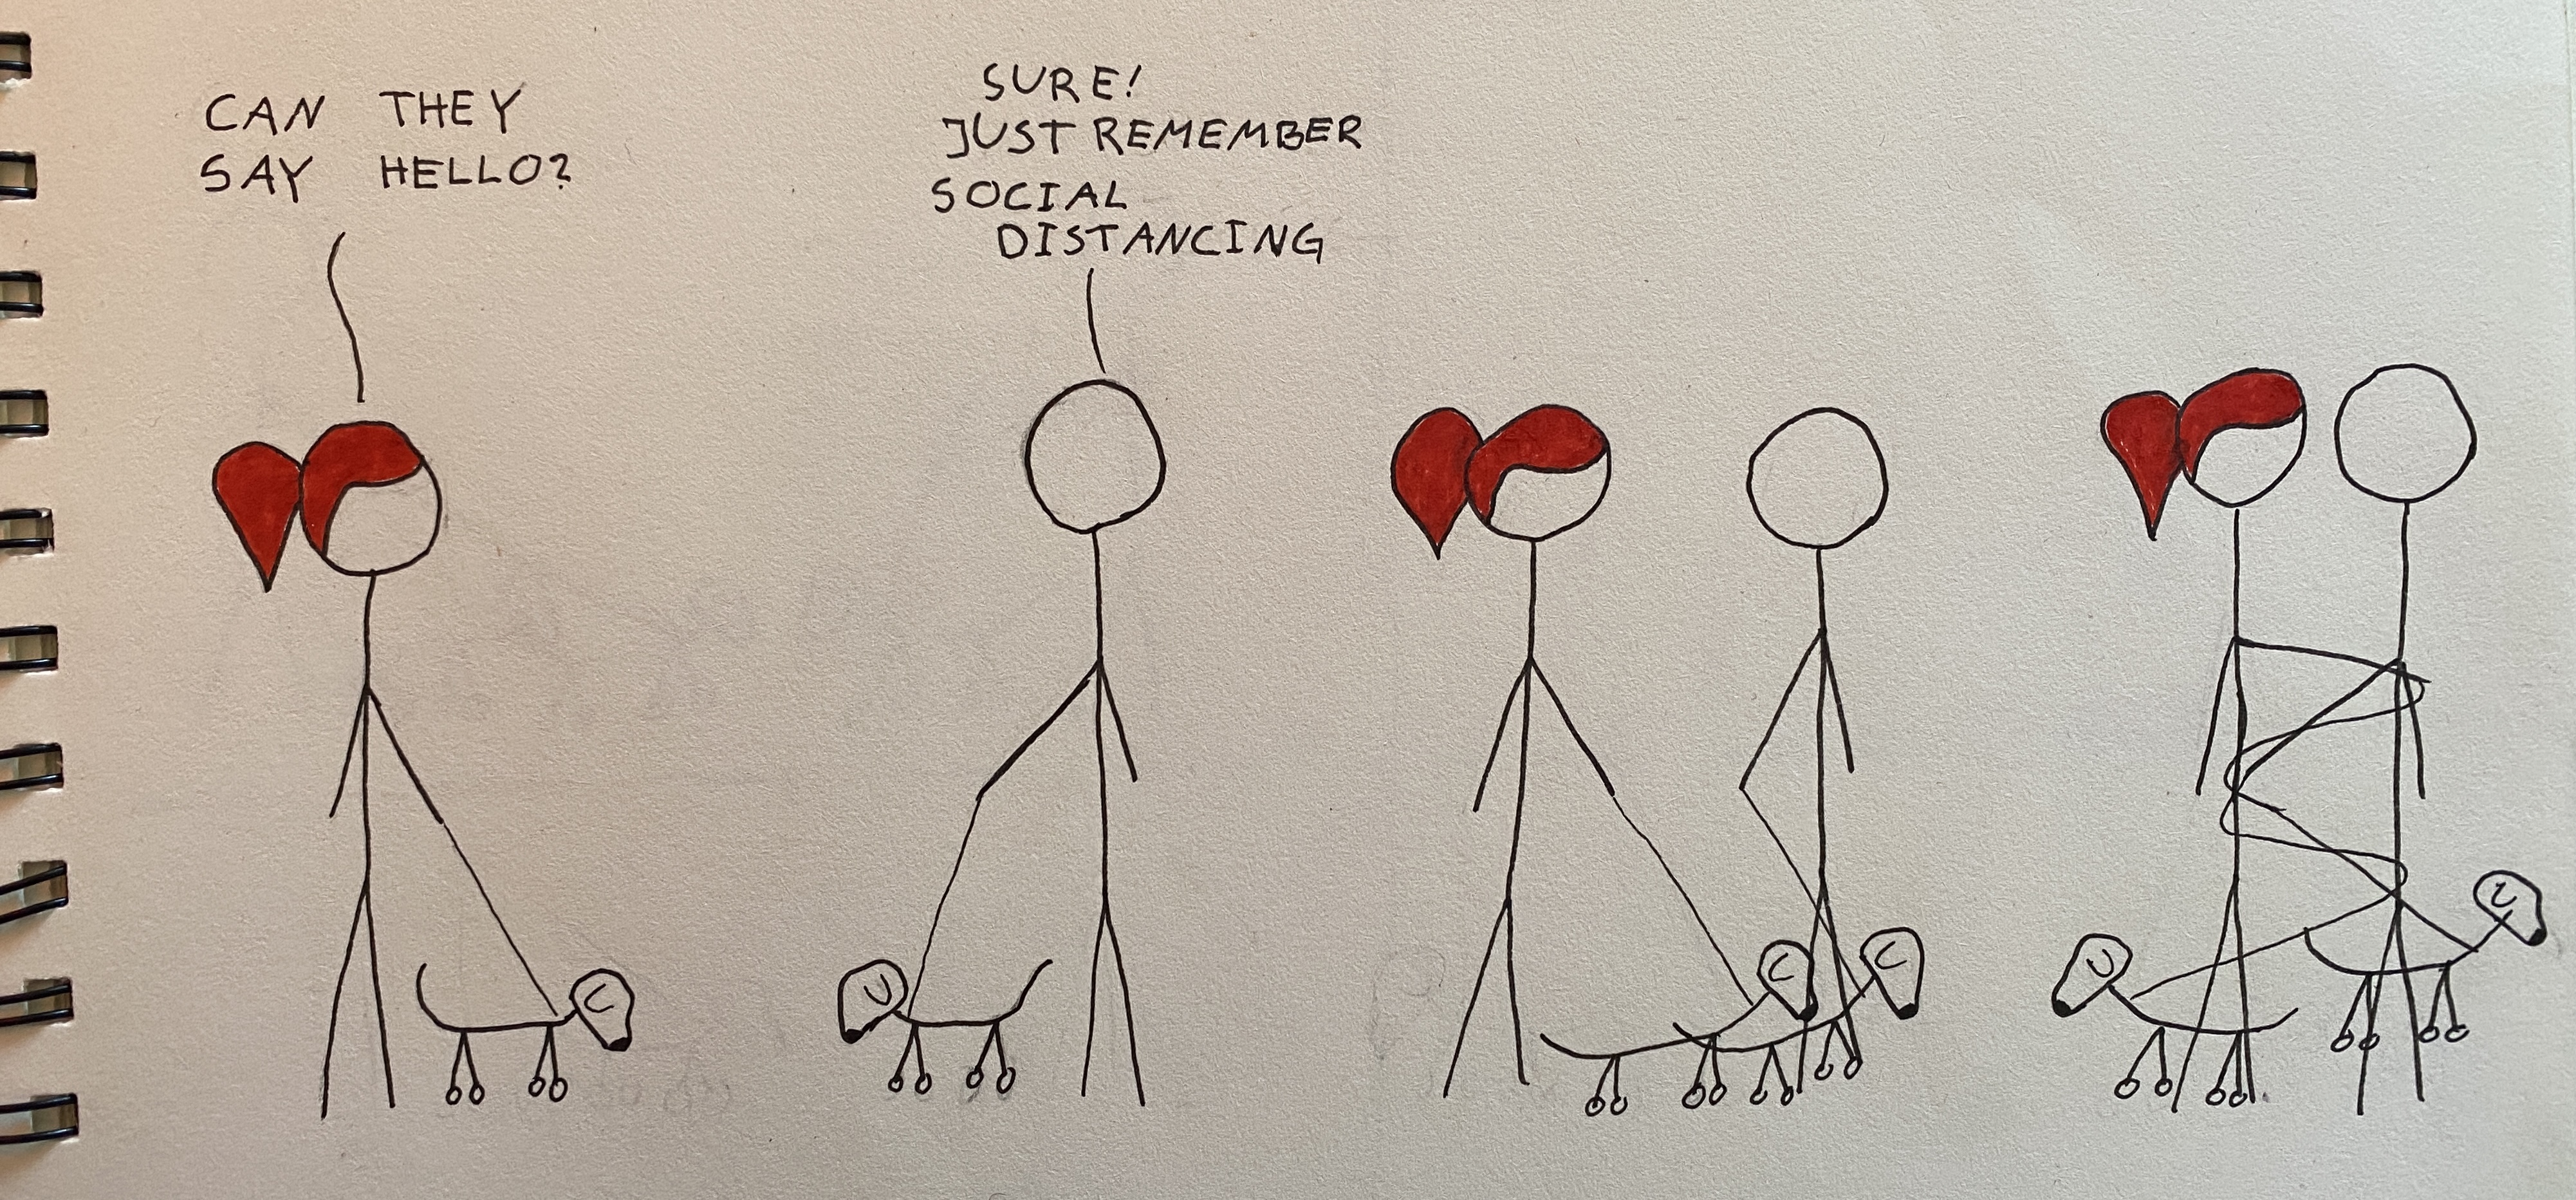 CAN THEY
SAY HELLO?
SURE!
JUST REMEMBER
SOCIAL
DISTANCING